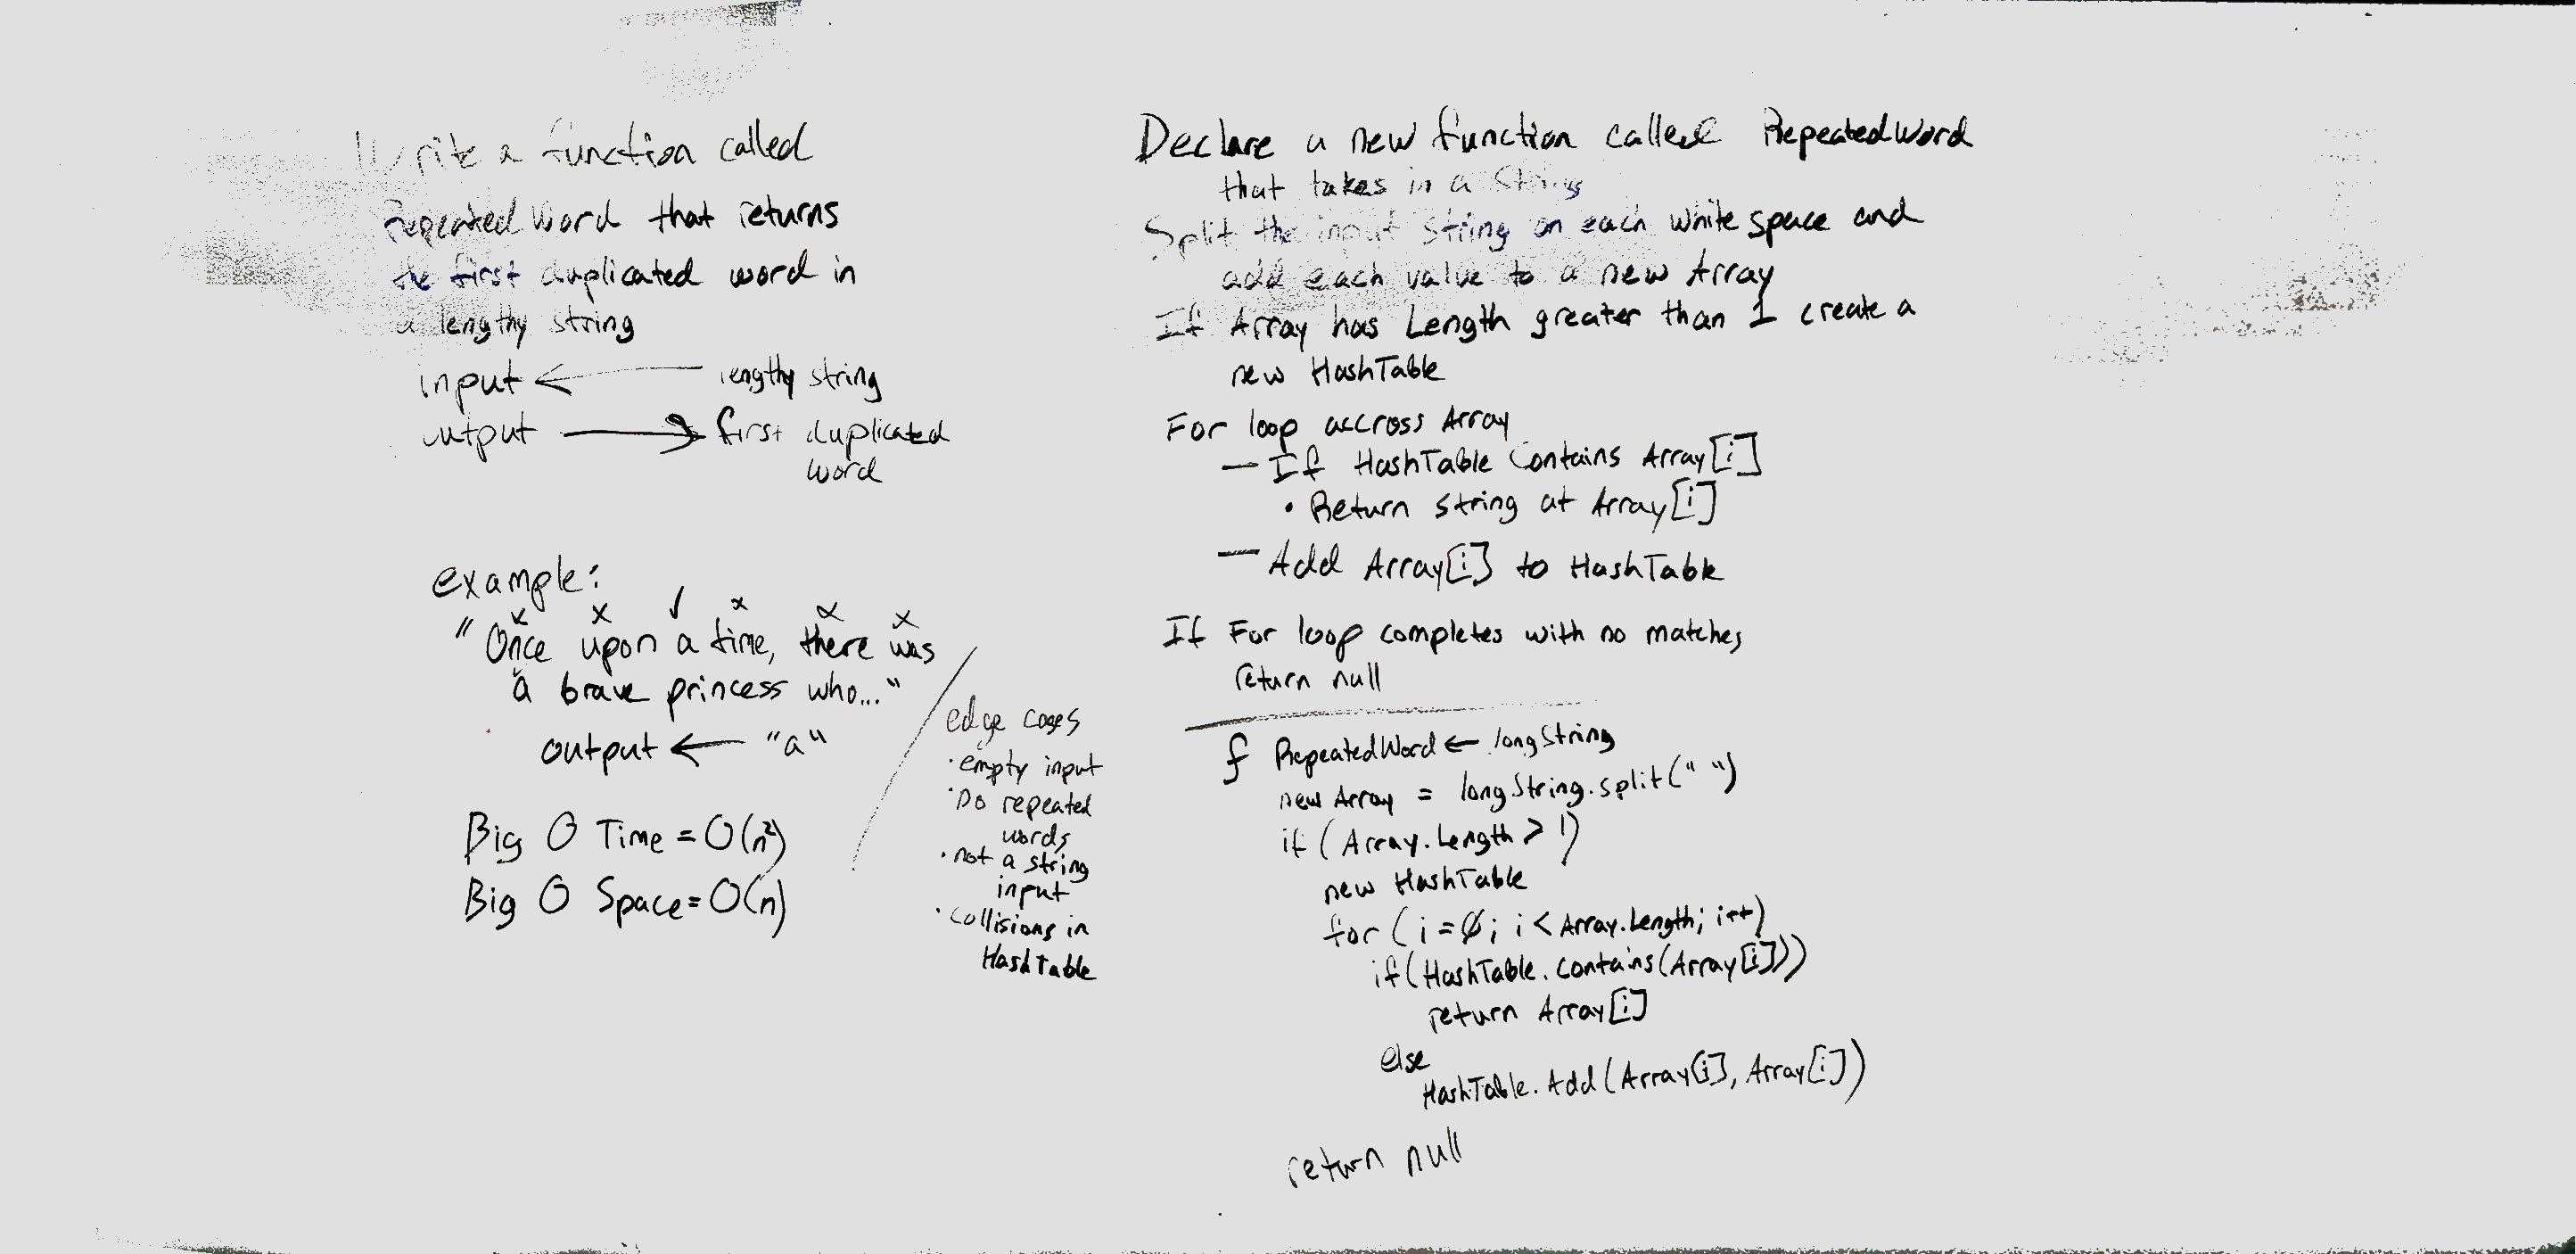 Write a function called
RepeatedWord that returns
the first duplicated word in
a lengthy string
input ← lengthy string
output → first duplicated
word
example:
x x ✓ x x x
"Once upon a time, there was
a brave princess who..."
output ← "a"
Big O Time = O(n²)
Big O Space = O(n)
edge cases
· empty input
· no repeated
words
· not a string
input
· collisions in
HashTable
Declare a new function called RepeatedWord
that takes in a string
Split the input string on each white space and
add each value to a new Array
If Array has Length greater than 1 create a
new HashTable
For loop accross Array
— If HashTable Contains Array[i]
• Return string at Array[i]
— Add Array[i] to HashTable
If For loop completes with no matches
return null
f RepeatedWord ← longString
new Array = longString.split(" ")
if (Array.Length > 1)
new HashTable
for (i = 0; i < Array.Length; i++)
if (HashTable.contains(Array[i]))
return Array[i]
else
HashTable.Add(Array[i], Array[i])
return null